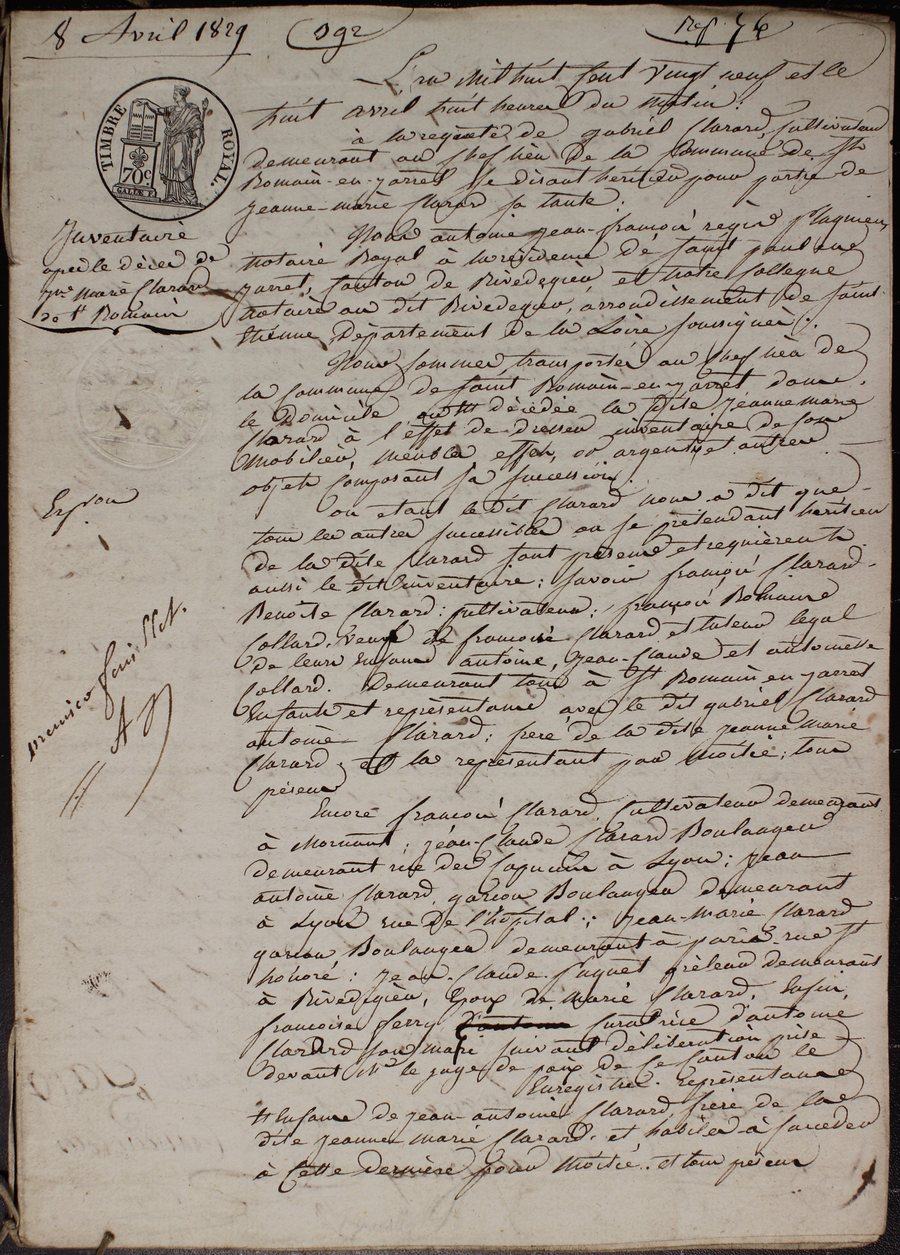 8 Avril 1829
L'an mil huit cent vingt neuf et le
huit avril huit heures du matin :
à la requete de gabriel Clarard, Cultivateur
demeurant au Chef lieu de la Commune de St
Romain-en-jarret Se disant heritier pour partie de
Jeanne-marie Clarard sa tante.
Nous antoine jean-françois regis
notaire Royal à la résidence de Saint paul en
jarret, Canton de Rivedegier, et notre Collegue
notaire au dit Rivedegier, arrondissement de Saint-
Etienne Département de la Loire soussignés.
Nous sommes transportés au Chef lieu de
la Commune de Saint Romain-en-jarret dans
le Domicile où est décédée la dite Jeanne marie
Clarard à l'effet de dresser inventaire de son
Mobilier, meubles effets, or argent et autres
objets Composant sa succession.
où etant le dit Clarard nous a dit que
tous les autres successibles ou se prétendant héritiers
de la dite Clarard sont présents et requièrent
aussi le dit inventaire ; savoir françois Clarard-
Benoîte Clarard ; Cultivateurs ; françois Romain
Collard, Veuf de françoise Clarard, et tuteur légal
de leurs Enfants antoine, Jean-Claude et antoinette
Collard. Demeurant tous à St Romain en jarret
Enfants et représentants avec le dit gabriel Clarard
antoine Clarard ; frere de la dite jeanne marie
Clarard ; et la représentant pour Moitié ; tous
présents
Encore françois Clarard, Cultivateur demeurant
à Mornant ; jean-Claude Clarard Boulanger
demeurant rue des Capucins à Lyon ; jean
antoine Clarard, garçon Boulanger demeurant
à Lyon rue De l'hopital ; Jean-Marie Clarard
garçon Boulanger demeurant à paris rue St
honoré ; Jean-Claude paquet demeurant
à Rivedegier, Epoux de Marie Clarard, Enfin,
françoise ferry Curatrice d'antoine
Clarard son mari suivant délibération prise
devant Mr le juge de paix de Ce Canton le
Enregistré. Représentants
Enfants de jean-antoine Clarard, frere de la
dite jeanne-marie Clarard et habiles à succeder
à Cette derniere pour Moitié. et tous présents
TIMBRE ROYAL.
70c
Inventaire
après le décès de
jne Marie Clarard
de St Romain
premier feuillet.